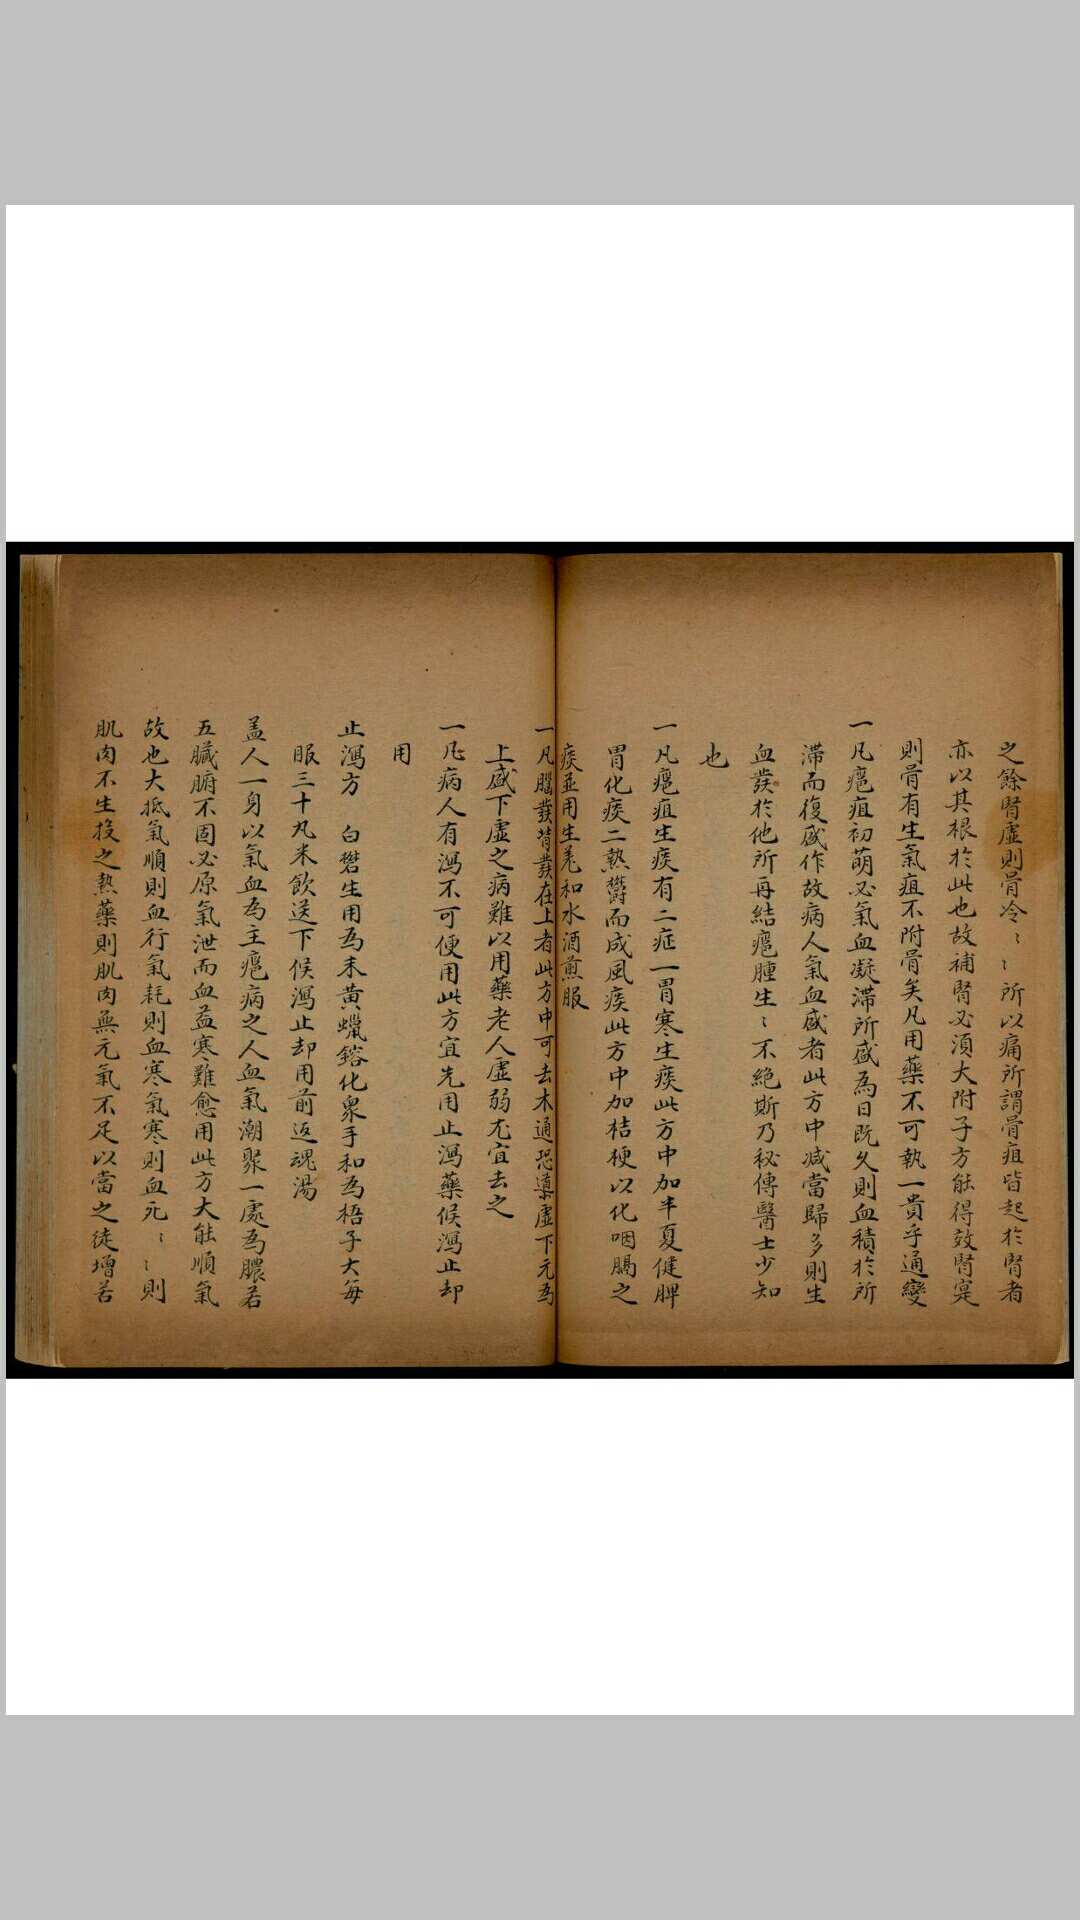 之餘腎虛則骨冷〻〻所以痛所謂骨疽皆起於腎者
亦以其根於此也故補腎必須大附子方能得效腎寔
則骨有生氣疽不附骨矣凡用藥不可執一貴乎通變
一凡癰疽初萌必氣血凝滯所盛為日既久則血積於所
滯而復盛作故病人氣血盛者此方中减當歸多則生
血發於他所再結癰腫生〻不絕斯乃秘傳醫士少知
也
一凡癰疽生痰有二症一胃寒生痰此方中加半夏健脾
胃化痰二熱欝而成風痰此方中加桔梗以化咽膈之
痰並用生羌和水酒煎服
一凡腦發背發在上者此方中可去木通恐導虛下元為
上盛下虛之病難以用藥老人虛弱尤宜去之
一凡病人有瀉不可便用此方宜先用止瀉藥候瀉止却
用
止瀉方　白礬生用為末黃蠟鎔化衆手和為梧子大每
服三十丸米飲送下候瀉止却用前返魂湯
盖人一身以氣血為主癰病之人血氣潮聚一處為膿若
五臟腑不固必原氣泄而血益寒難愈用此方大能順氣
故也大抵氣順則血行氣耗則血寒氣寒則血死〻〻則
肌肉不生投之熱藥則肌肉無元氣不足以當之徒增苦